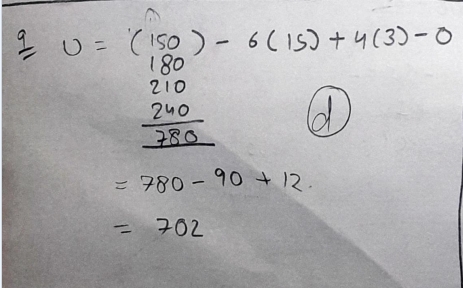 9 U = (150) - 6(15) + 4(3) - 0
180
210
240
780
d
= 780 - 90 + 12.
= 702